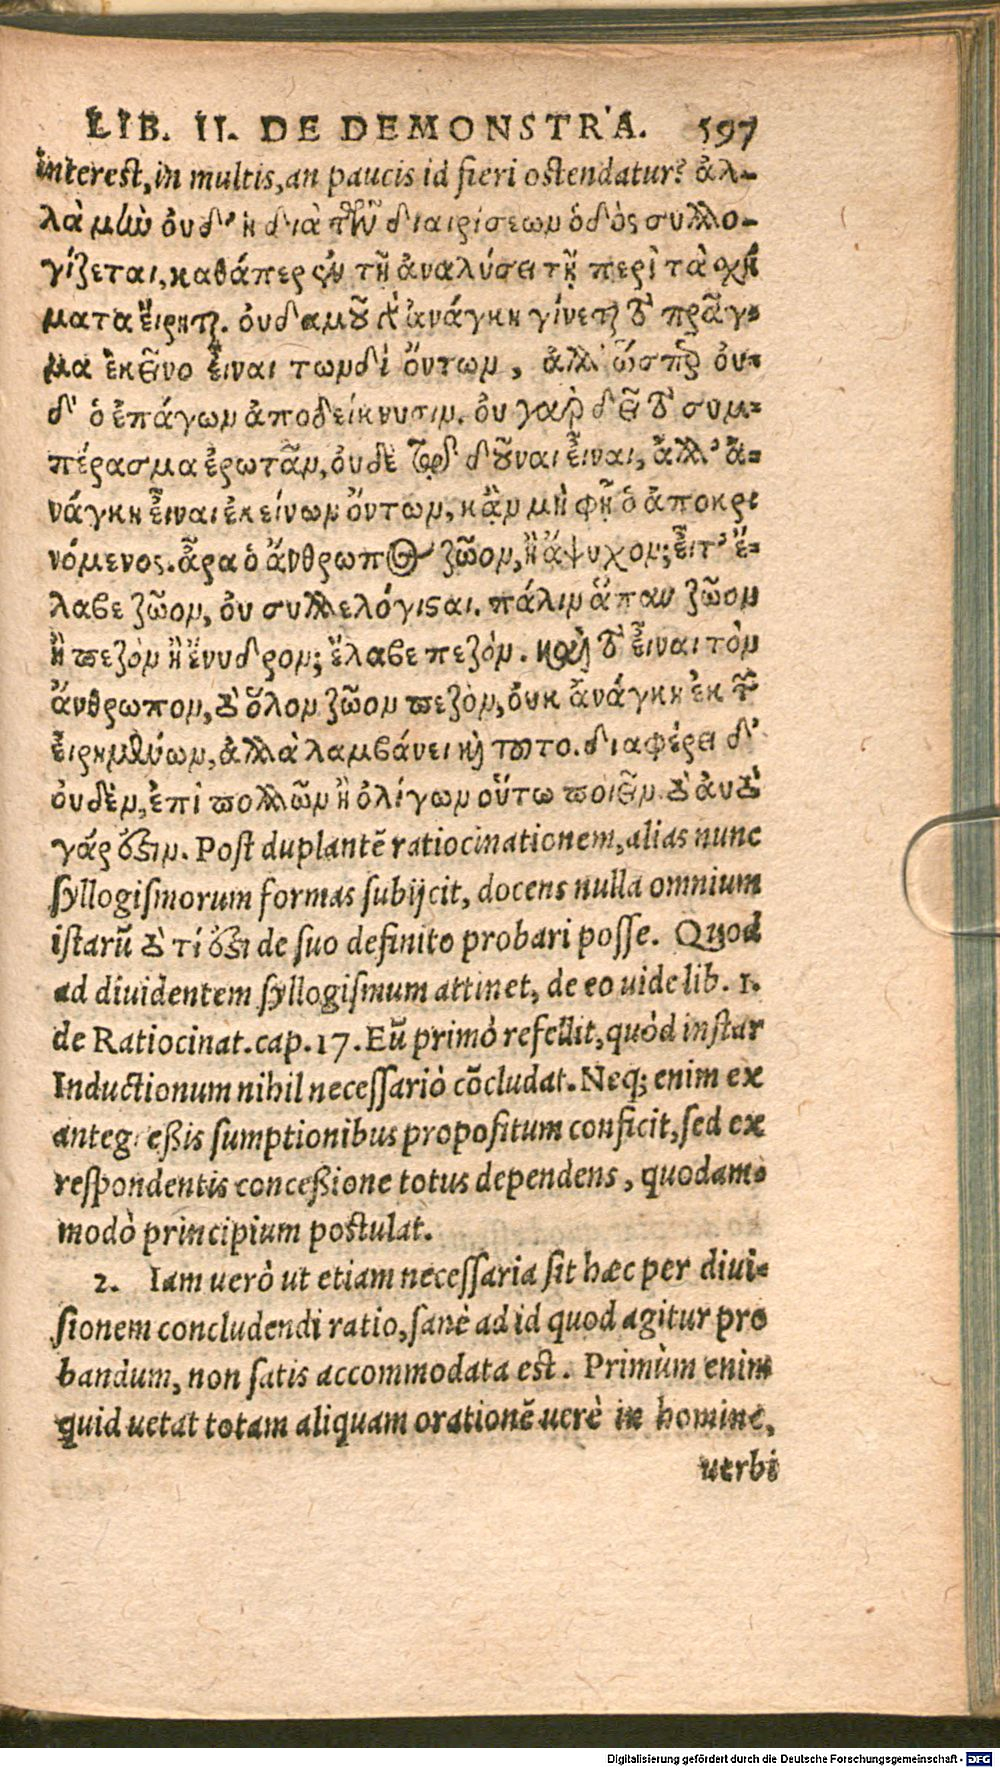 LIB. II. DE DEMONSTRA. 597
interest, in multis, an paucis id fieri ostendatur? ἀλ-
λὰ μὴν οὐδ' ἡ διὰ τῶν διαιρίσεων ὁδὸς συλλο-
γίζεται, καθάπερ ἐν τῇ ἀναλύσει τῇ περὶ τὰ σχή
ματα εἴρηται. οὐδαμοῦ γὰρ ἀνάγκη γίνεται τὸ πρᾶγ-
μα ἐκεῖνο εἶναι τωνδὶ ὄντων, ἀλλ' ὥσπερ οὐ-
δ' ὁ ἐπάγων ἀποδείκνυσιν. οὐ γὰρ δεῖ τὸ συμ-
πέρασμα ἐρωτᾶν, οὐδὲ τῷ δοῦναι εἶναι, ἀλλ' ἀ-
νάγκη εἶναι ἐκείνων ὄντων, κἂν μὴ φῇ ὁ ἀποκρι
νόμενος. ἆρα ὁ ἄνθρωπος ζῶον, ἢ ἄψυχον; εἶτ' ἔ-
λαβε ζῶον, οὐ συλλελόγισαι. πάλιν ἅπαν ζῶον
ἢ πεζὸν ἢ ἔνυδρον; ἔλαβε πεζόν. καὶ τὸ εἶναι τὸν
ἄνθρωπον, τὸ ὅλον ζῶον πεζὸν, οὐκ ἀνάγκη ἐκ τῶν
εἰρημένων, ἀλλὰ λαμβάνει καὶ τοῦτο. διαφέρει δ'
οὐδὲν, ἐπὶ πολλῶν ἢ ὀλίγων οὕτω ποιεῖν. τὸ αὐτὸ
γάρ ἐστιν. Post duplantẽ ratiocinationem, alias nunc
syllogismorum formas subijcit, docens nulla omnium
istarũ τὸ τί ἐστι de suo definito probari posse. Quod
ad diuidentem syllogismum attinet, de eo uide lib. 1.
de Ratiocinat. cap. 17. Eũ primò refellit, quòd instar
Inductionum nihil necessariò cõcludat. Neq; enim ex
antegreßis sumptionibus propositum conficit, sed ex
respondentis conceßione totus dependens, quodam-
modò principium postulat.
2. Iam uerò ut etiam necessaria sit hæc per diui-
sionem concludendi ratio, sanè ad id quod agitur pro
bandum, non satis accommodata est. Primùm enim
quid uetat totam aliquam orationẽ uerè in homine,
uerbi
Digitalisierung gefördert durch die Deutsche Forschungsgemeinschaft - DFG